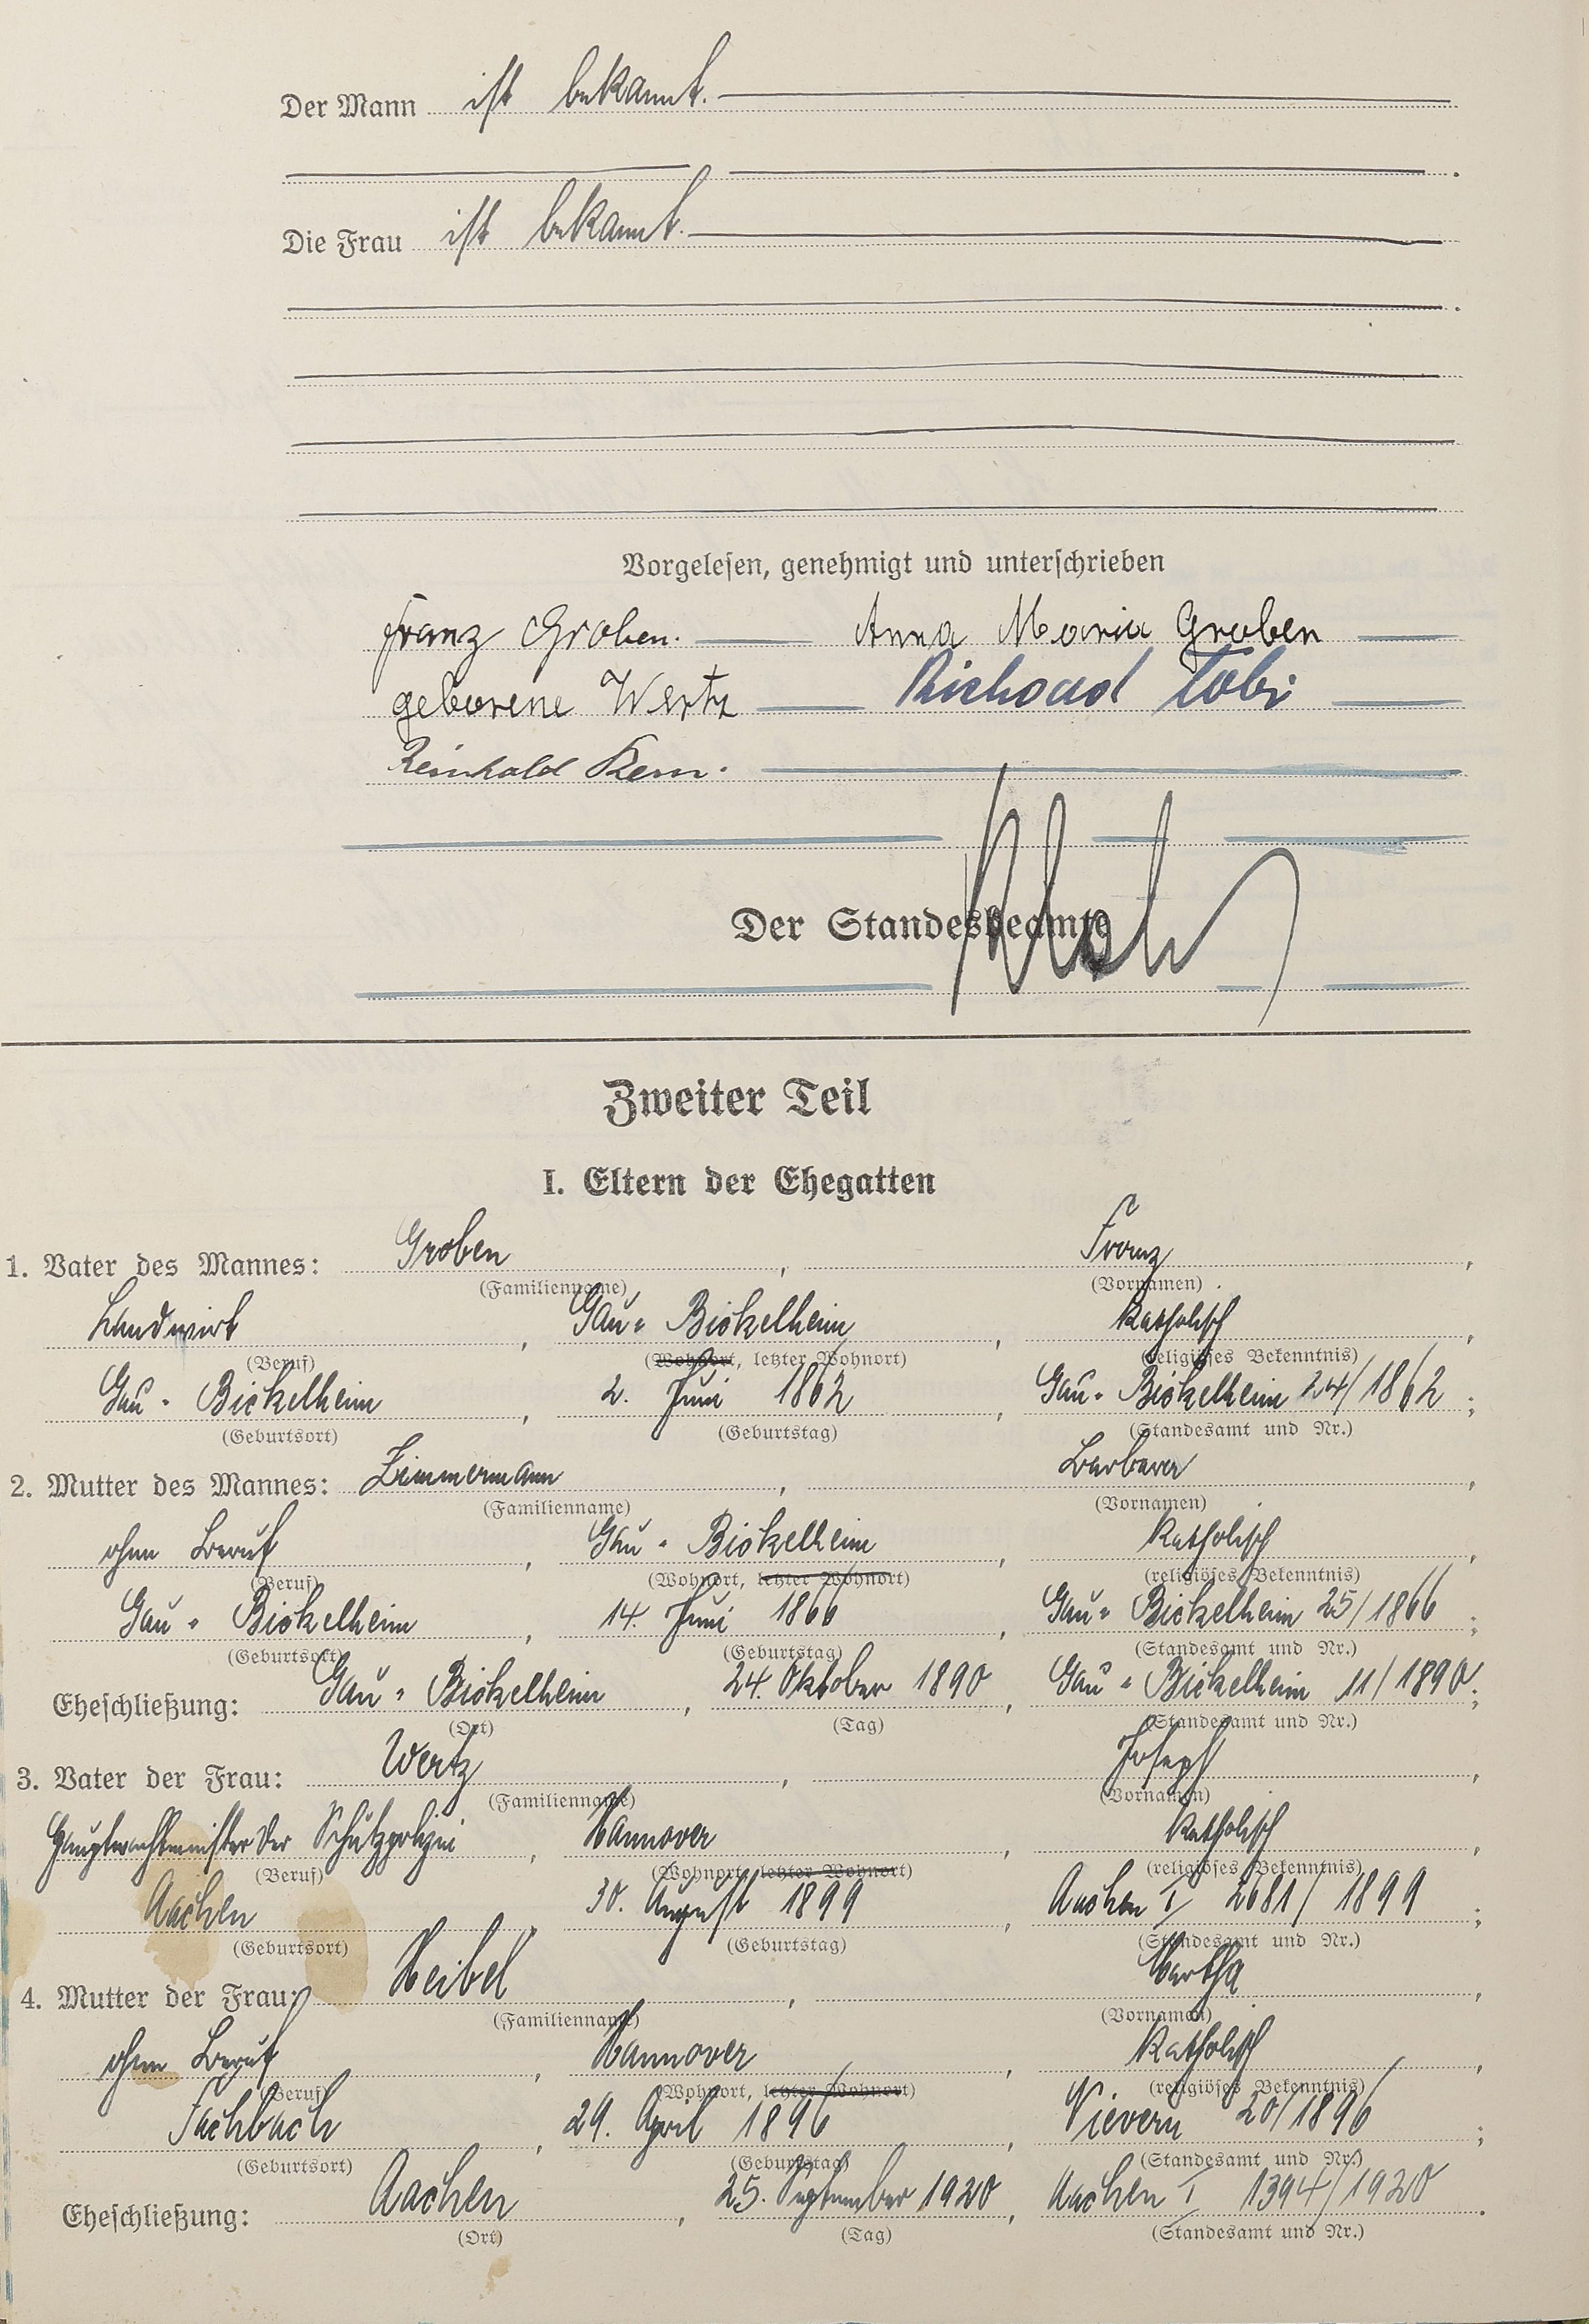 Der Mann ist bekannt.
Die Frau ist bekannt.
Vorgelesen, genehmigt und unterschrieben
Franz Groben. Anna Maria Groben
geborene Wertz Richard
Reinhold Kern.
Der Standesbeamte
Zweiter Teil
I. Eltern der Ehegatten
1. Vater des Mannes: Groben, Franz,
(Familienname) (Vornamen)
Landwirt, Gau-Bickelheim, Katholisch,
(Beruf) (Wohnort, letzter Wohnort) (religiöses Bekenntnis)
Gau-Bickelheim, 2. Juni 1862, Gau-Bickelheim 24/1862;
(Geburtsort) (Geburtstag) (Standesamt und Nr.)
2. Mutter des Mannes: Zimmermann, Barbara,
(Familienname) (Vornamen)
ohne Beruf, Gau-Bickelheim, Katholisch,
(Beruf) (Wohnort, letzter Wohnort) (religiöses Bekenntnis)
Gau-Bickelheim, 14. Juni 1866, Gau-Bickelheim 25/1866;
(Geburtsort) (Geburtstag) (Standesamt und Nr.)
Eheschließung: Gau-Bickelheim, 24. Oktober 1890, Gau-Bickelheim 11/1890;
(Ort) (Tag) (Standesamt und Nr.)
3. Vater der Frau: Wertz, Joseph,
(Familienname) (Vornamen)
Hauptwachtmeister der Schutzpolizei, Hannover, Katholisch,
(Beruf) (Wohnort, letzter Wohnort) (religiöses Bekenntnis)
Aachen, 30. August 1899, Aachen I 2681/1899;
(Geburtsort) (Geburtstag) (Standesamt und Nr.)
4. Mutter der Frau: Heibel, Martha,
(Familienname) (Vornamen)
ohne Beruf, Hannover, Katholisch,
(Beruf) (Wohnort, letzter Wohnort) (religiöses Bekenntnis)
Fachbach, 29. April 1896, Nievern 20/1896;
(Geburtsort) (Geburtstag) (Standesamt und Nr.)
Eheschließung: Aachen, 25. September 1920, Aachen I 1394/1920.
(Ort) (Tag) (Standesamt und Nr.)